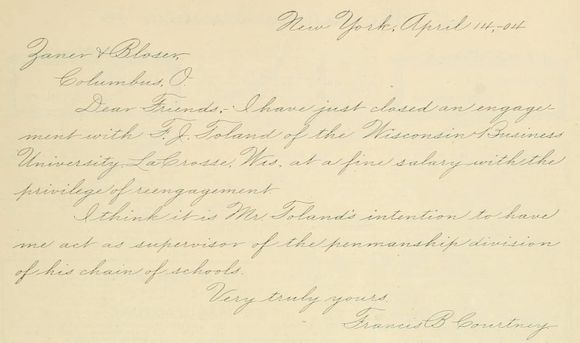 New York, April 14,-04
Zaner & Bloser,
Columbus, O.
Dear Friends,- I have just closed an engage-
ment with F. J. Toland of the Wisconsin Business
University, La Crosse, Wis. at a fine salary with the
privilege of reengagement
I think it is Mr Toland's intention to have
me act as supervisor of the penmanship division
of his chain of schools.
Very truly yours,
Francis B Courtney